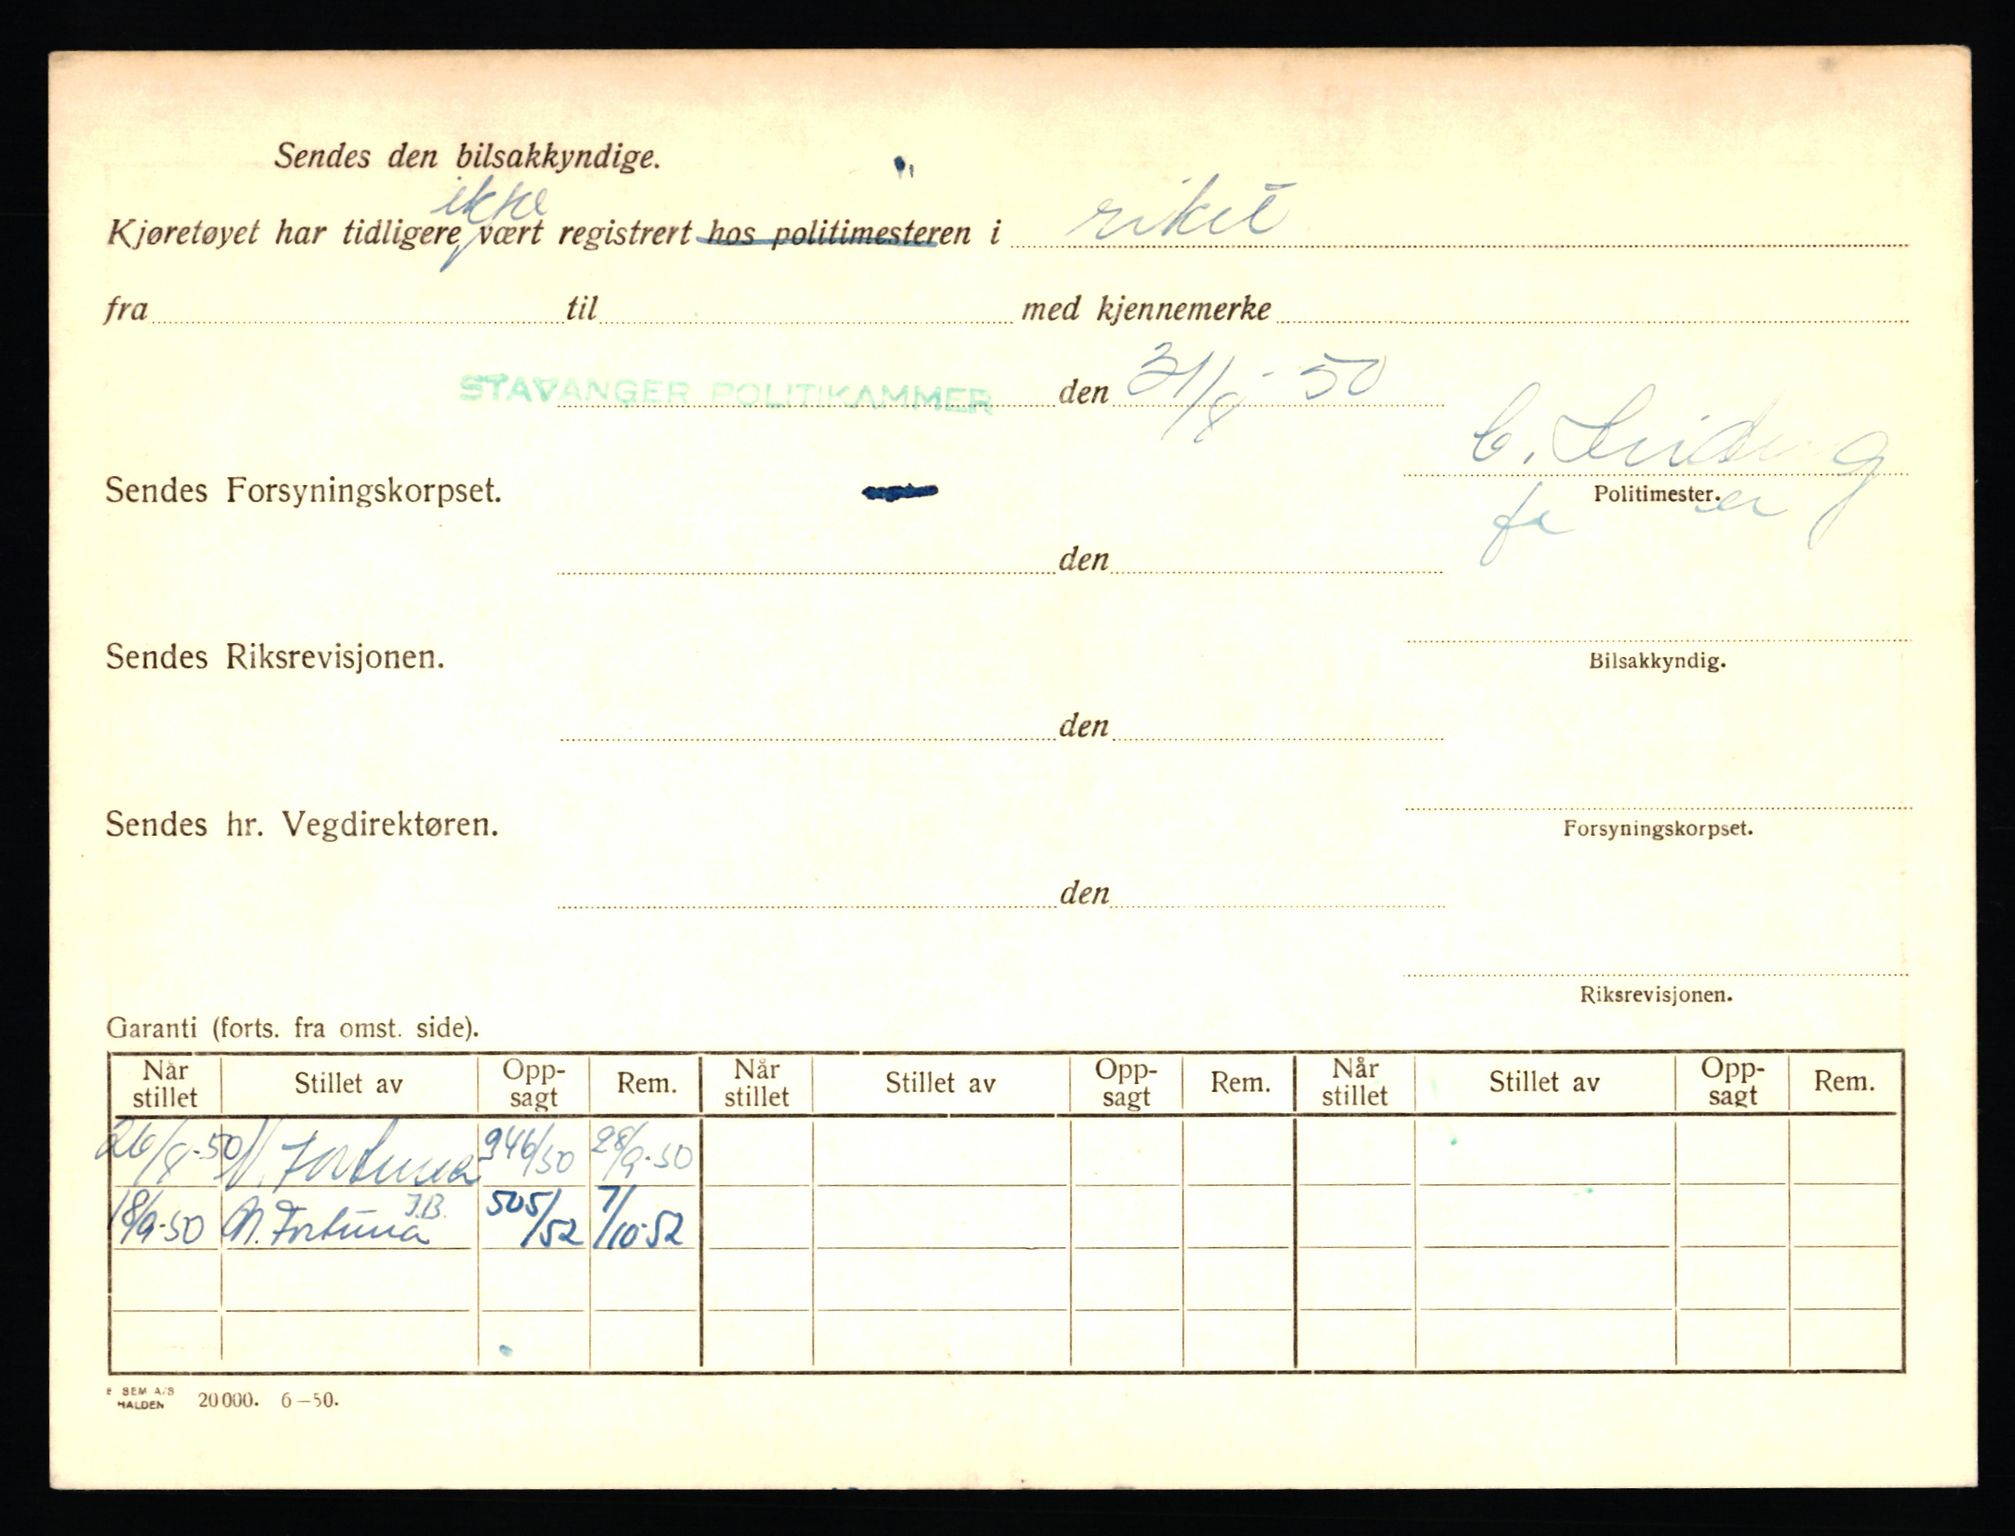 Sendes den bilsakkyndige.
ikke
Kjøretøyet har tidligere vært registrert hos politimesteren i riket
fra til med kjennemerke
STAVANGER POLITIKAMMER den 31/8-50
Sendes Forsyningskorpset.
Politimester.
den
Sendes Riksrevisjonen.
Bilsakkyndig.
den
Sendes hr. Vegdirektøren.
Forsyningskorpset.
den
Riksrevisjonen.
Garanti (forts. fra omst. side).
Når stillet Stillet av Opp-sagt Rem. Når stillet Stillet av Opp-sagt Rem. Når stillet Stillet av Opp-sagt Rem.
26/8-50 N. Fortuna 946/50 28/9-50
18/9-50 N. Fortuna J.B. 505/52 7/10-52
SEM A/S
HALDEN 20000. 6-50.